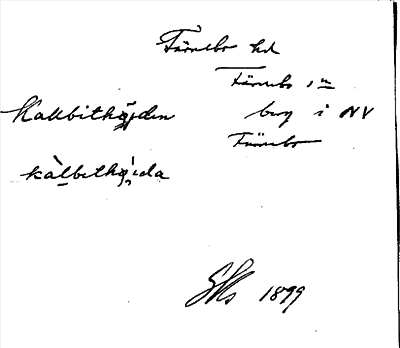 Färnebo hd
Färnebo sn
Kallbithöjden berg i NV
Färnebo
kàlbithö̀ida
1899